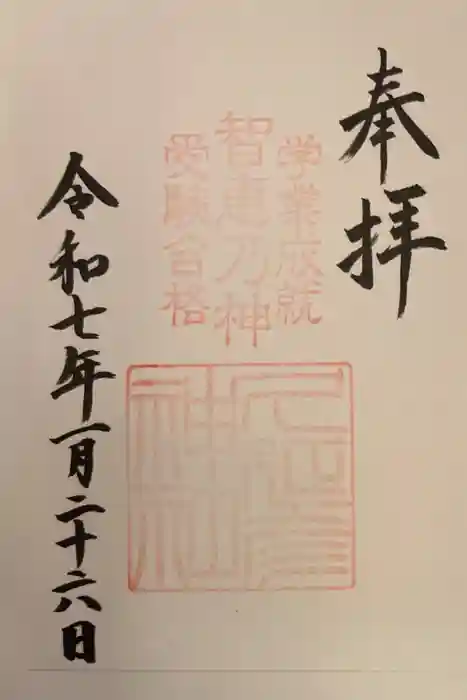 奉拝
学業成就
智恵乃神
受験合格
令和七年一月二十六日